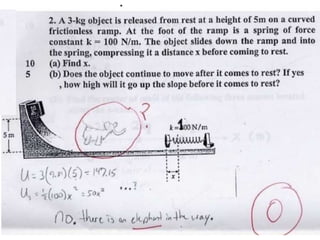 2. A 3-kg object is released from rest at a height of 5m on a curved
frictionless ramp. At the foot of the ramp is a spring of force
constant k = 100 N/m. The object slides down the ramp and into
the spring, compressing it a distance x before coming to rest.
10 (a) Find x.
5 (b) Does the object continue to move after it comes to rest? If yes
, how high will it go up the slope before it comes to rest?
?
5 m
k=100 N/m
x
U = 3(9.81)(5) = 147.15
Us = ½(100)x² = 50x²
...?
no. there is an elephant in the way.
0